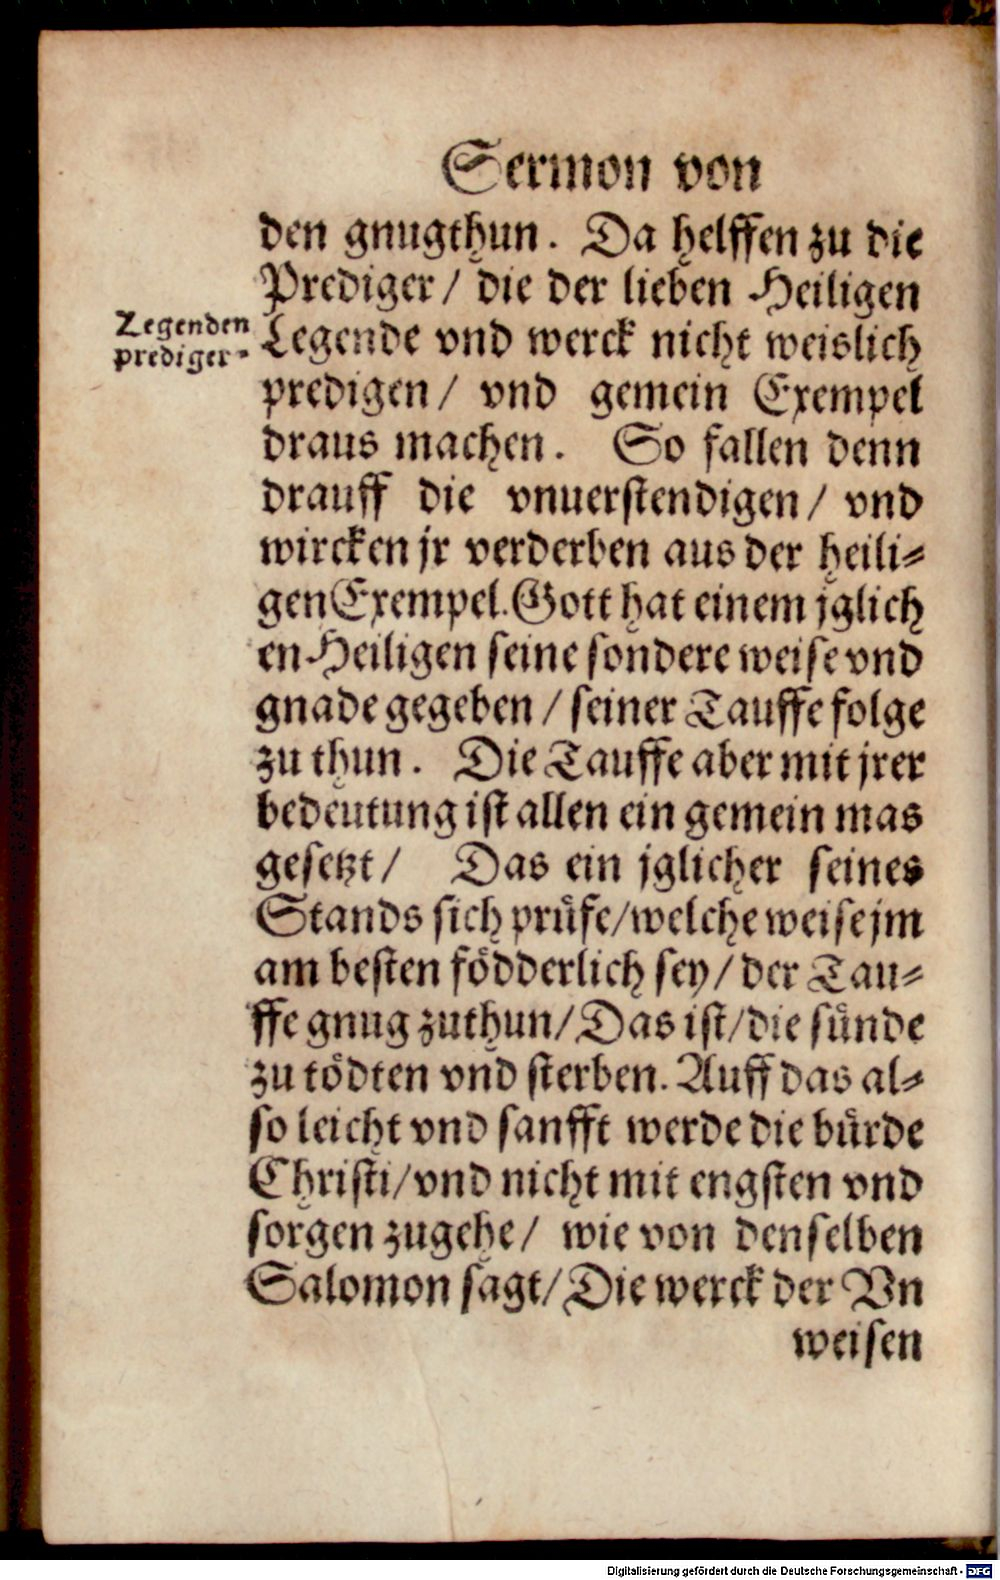 Sermon von
den gnugthun. Da helffen zu die
Prediger / die der lieben Heiligen
Legenden
prediger.
Legende vnd werck nicht weislich
predigen / vnd gemein Exempel
draus machen. So fallen denn
drauff die vnuerstendigen / vnd
wircken jr verderben aus der heili-
gen Exempel. Gott hat einem jglich
en Heiligen seine sondere weise vnd
gnade gegeben / seiner Tauffe folge
zu thun. Die Tauffe aber mit jrer
bedeutung ist allen ein gemein mas
gesetzt / Das ein jglicher seines
Stands sich prüfe / welche weise jm
am besten födderlich sey / der Tau-
ffe gnug zuthun / Das ist / die sünde
zu tödten vnd sterben. Auff das al-
so leicht vnd sanfft werde die bürde
Christi / vnd nicht mit engsten vnd
sorgen zugehe / wie von denselben
Salomon sagt / Die werck der Vn
weisen
Digitalisierung gefördert durch die Deutsche Forschungsgemeinschaft - DFG